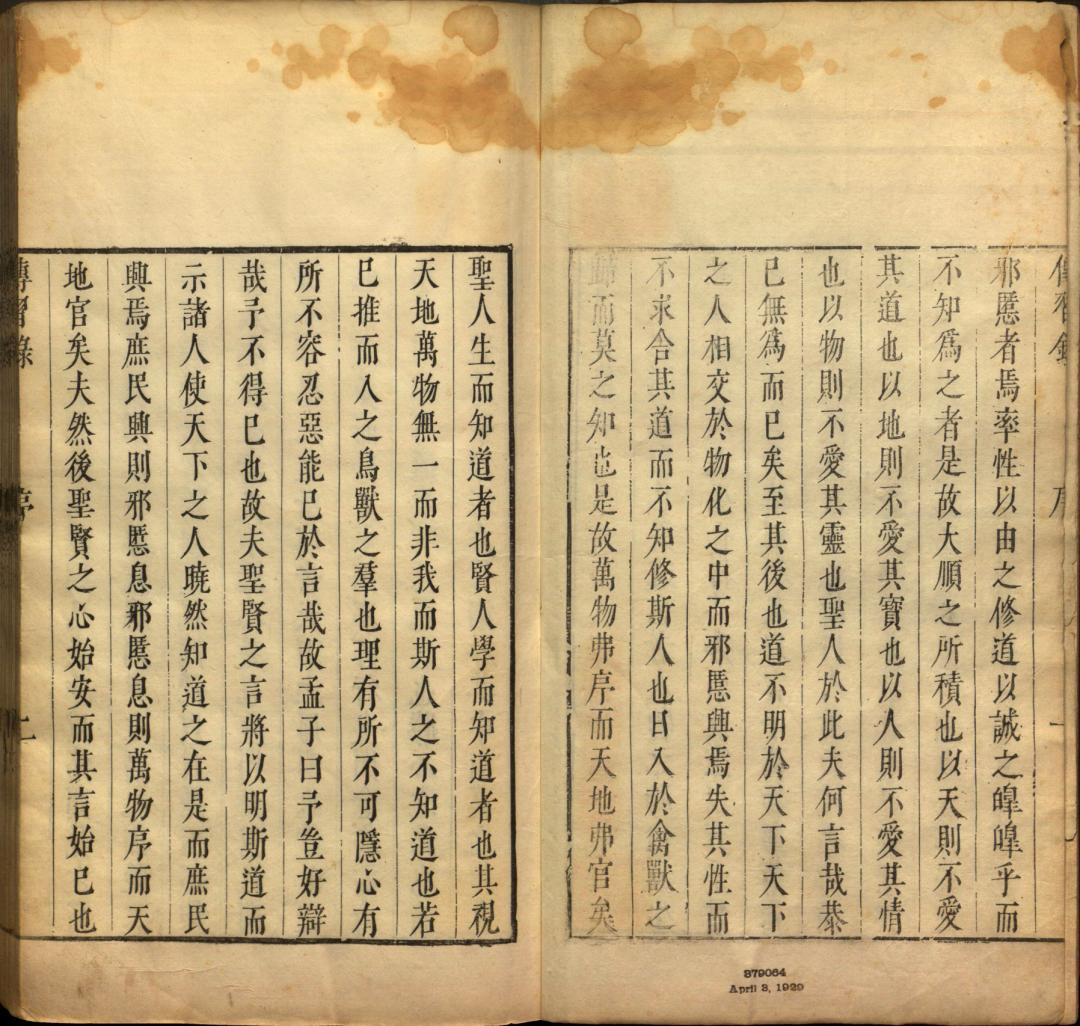 傳習錄 序
邪慝者焉率性以由之修道以誠之皥皥乎而
不知爲之者是故大順之所積也以天則不愛
其道也以地則不愛其寶也以人則不愛其情
也以物則不愛其靈也聖人於此夫何言哉恭
已無爲而已矣至其後也道不明於天下天下
之人相交於物化之中而邪慝興焉失其性而
不求合其道而不知修斯人也日入於禽獸之
歸而莫之知也是故萬物弗序而天地弗官矣
聖人生而知道者也賢人學而知道者也其視
天地萬物無一而非我而斯人之不知道也若
已推而入之鳥獸之羣也理有所不可隱心有
所不容忍惡能已於言哉故孟子曰予豈好辯
哉予不得已也故夫聖賢之言將以明斯道而
示諸人使天下之人曉然知道之在是而庶民
興焉庶民興則邪慝息邪慝息則萬物序而天
地官矣夫然後聖賢之心始安而其言始已也
傳習錄 序
379064
April 3, 1929